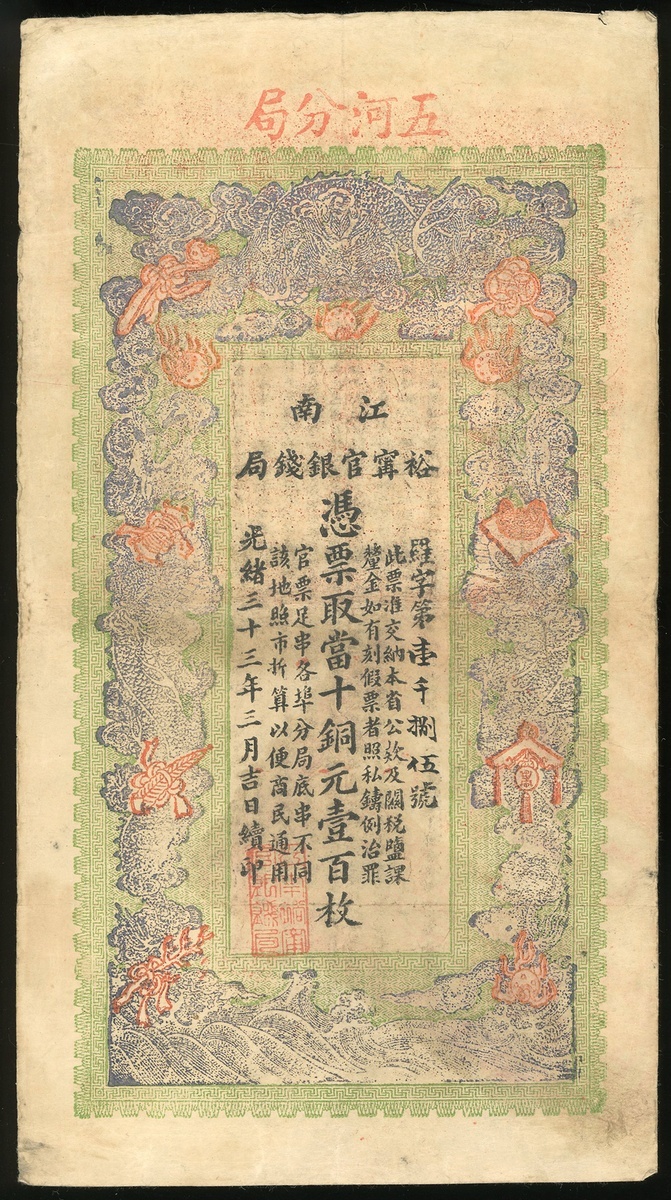 五河分局
江南
裕寧官銀錢局
羅字第壹千捌伍號
此票准交納本省公欵及關稅鹽課
釐金如有刻假票者照私鑄例治罪
憑票取當十銅元壹百枚
官票足串各埠分局底串不同
該地照市折算以便商民通用
光緒三十三年三月吉日續印